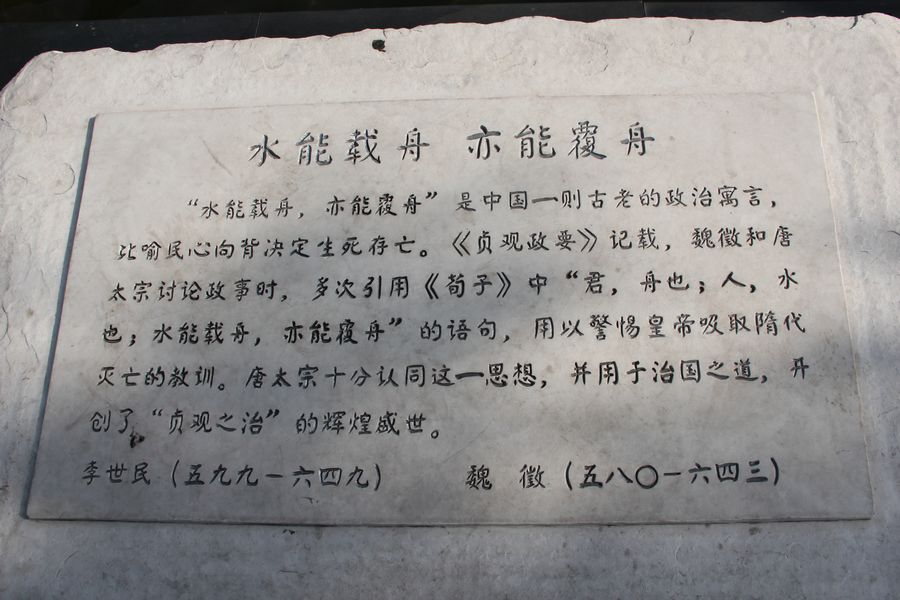 水能载舟 亦能覆舟
“水能载舟，亦能覆舟”是中国一则古老的政治寓言，
比喻民心向背决定生死存亡。《贞观政要》记载，魏徵和唐
太宗讨论政事时，多次引用《荀子》中“君，舟也；人，水
也；水能载舟，亦能覆舟”的语句，用以警惕皇帝吸取隋代
灭亡的教训。唐太宗十分认同这一思想，并用于治国之道，开
创了“贞观之治”的辉煌盛世。
李世民（五九九－六四九） 魏 徵（五八〇－六四三）